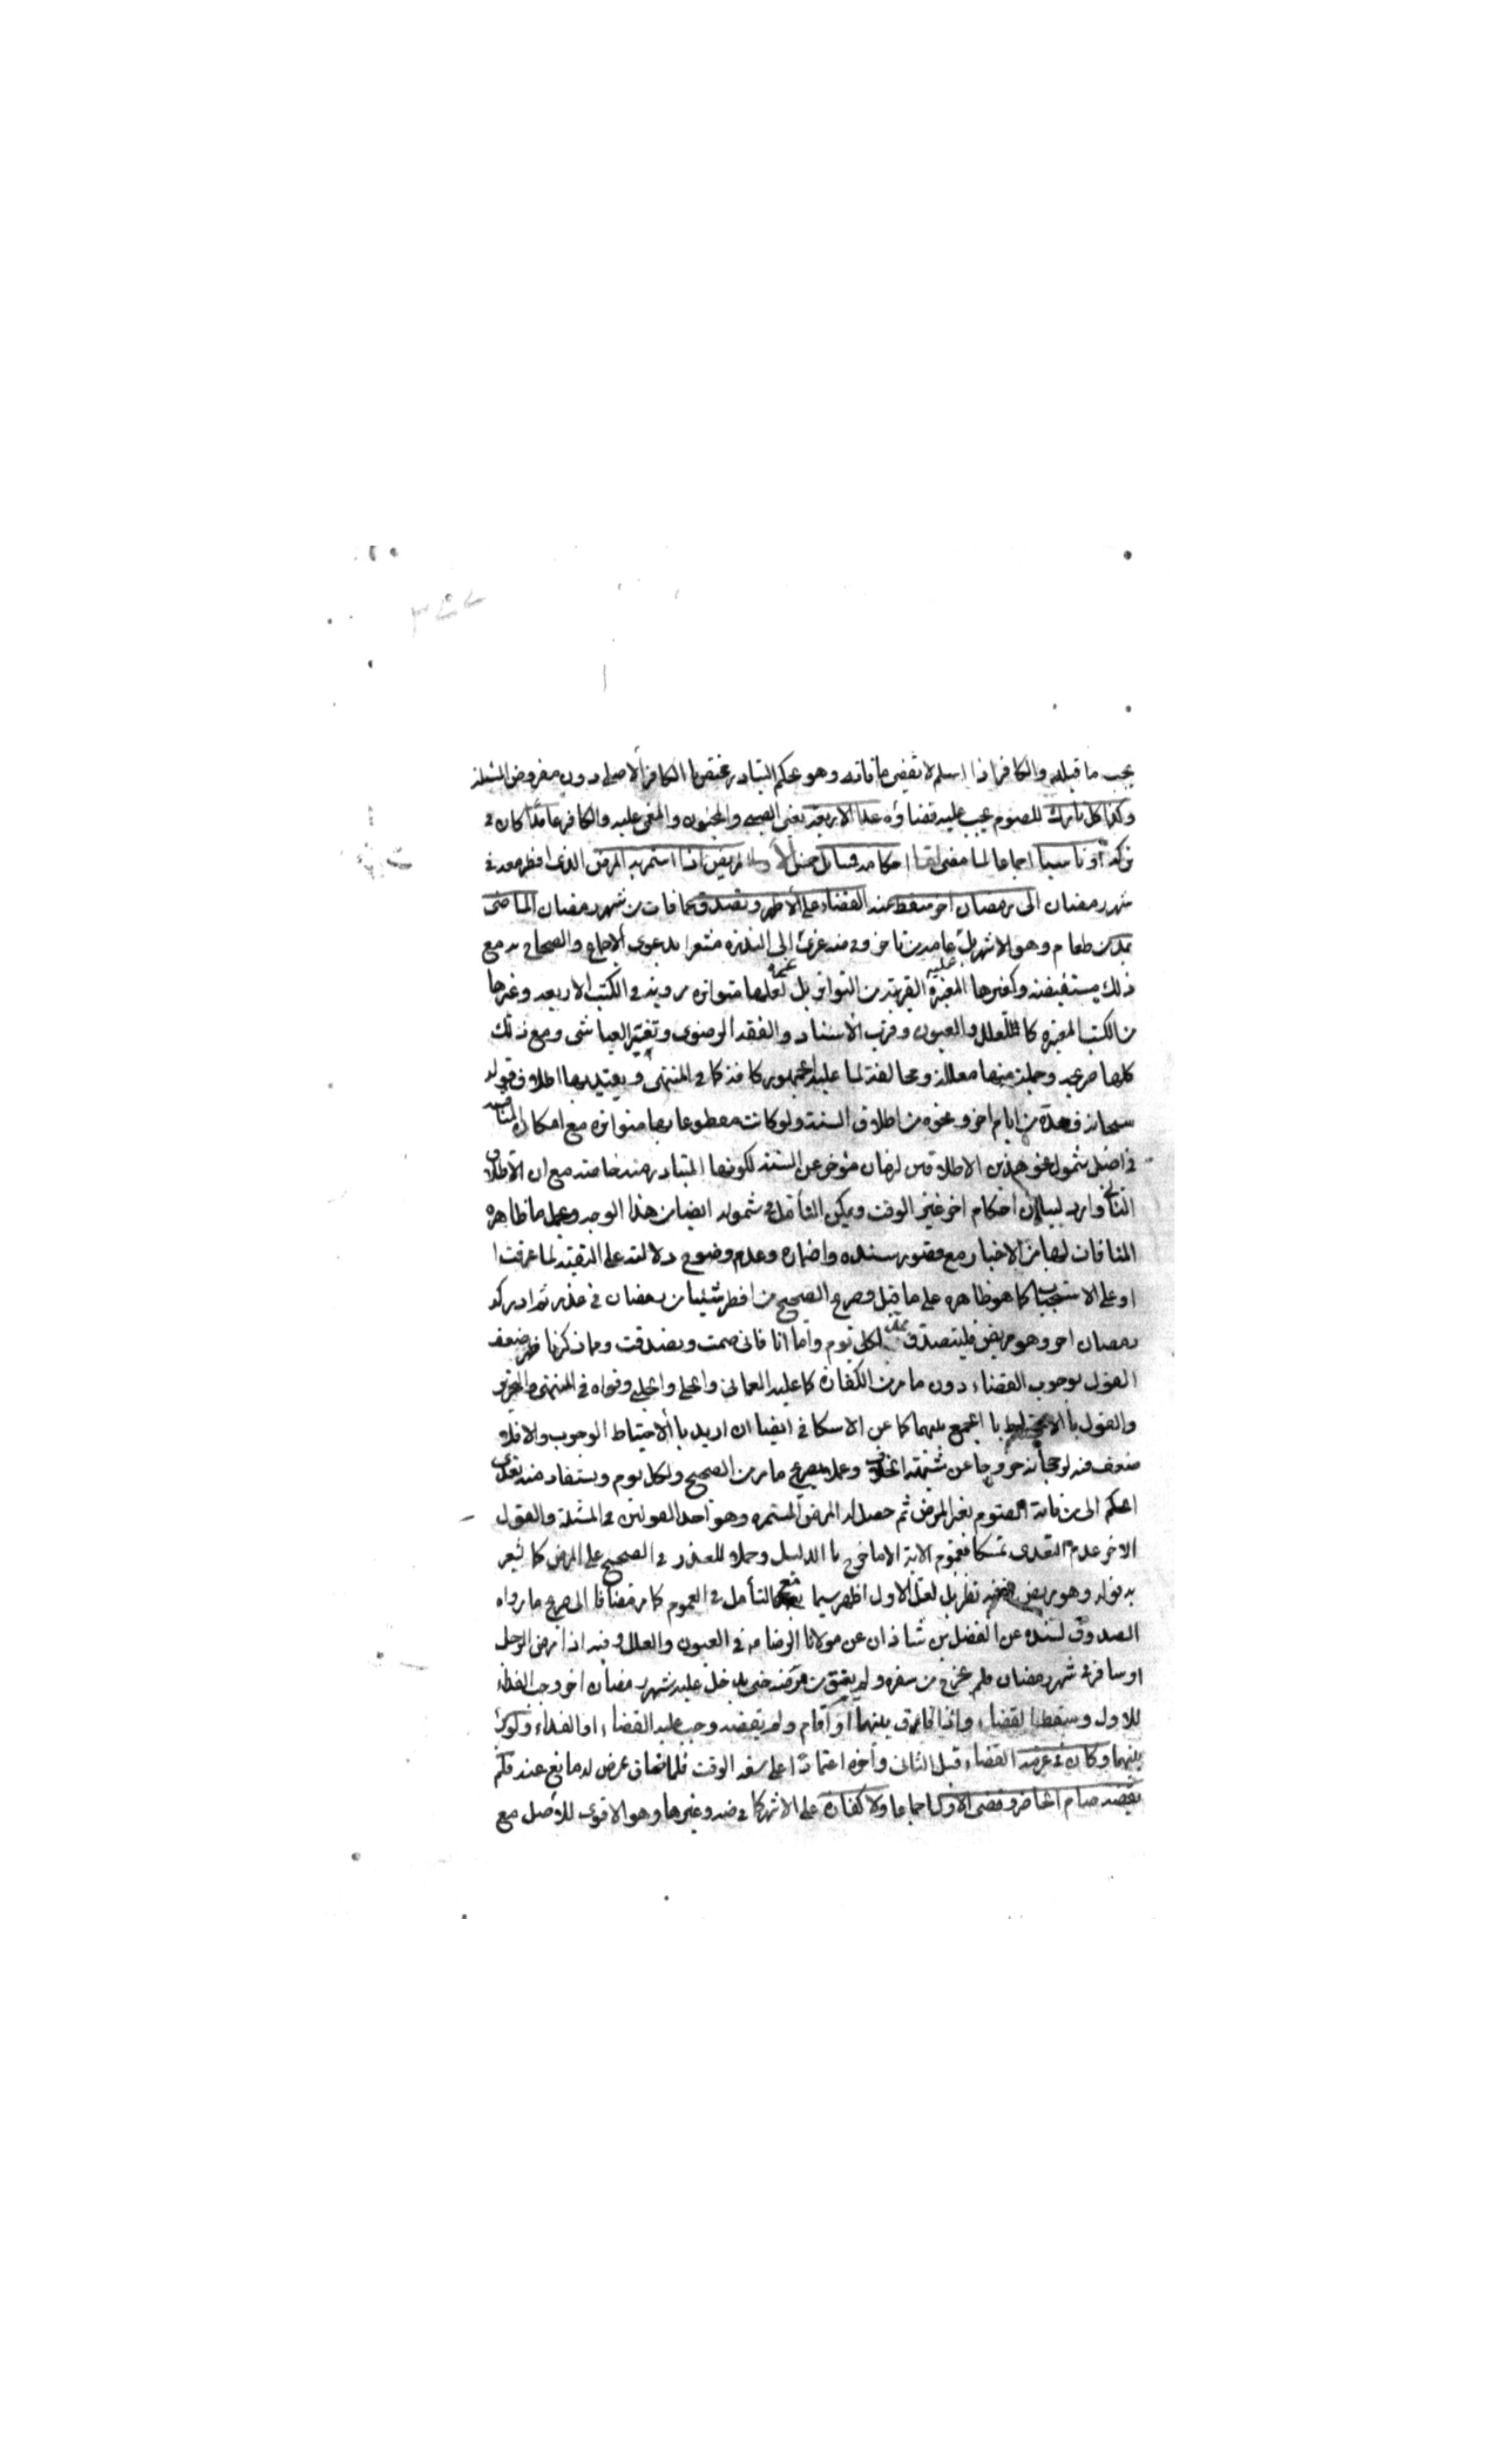 يجب ما قبله والكافر اذا اسلم لا يقضى ما فاته وهو بحكم التبادر مختص بالكافر الاصلى دون مفروض المسئلة
وكذا كل تارك للصوم يجب عليه قضاؤه عدا الاربعة يعنى الصبى والمجنون والمغمى عليه والكافر عامدًا كان فى
تركه او ناسيا اجماعا لما مضى احكامه فمسائل المريض اذا استمر به المرض الذى افطر معه فى
شهر رمضان الى رمضان اخر سقط عنه القضاء على الاظهر وتصدق عما فات من شهر رمضان الماضى
بمد من طعام وهو الاشهر بل عامة من تاخر وفى عزى الى الندرة مشعرا بدعوى الاجماع والصحاح به مع
ذلك مستفيضة وكغيرها المعتبرة القريبة من التواتر بل لعلها متواترة مروية فى الكتب الاربعة وغيرها
من الكتب المعتبرة كالعلل والعيون وقرب الاسناد والفقه الرضوى وتفسير العياشى ومع ذلك
كلها صريحة وجملة منها معللة ومخالفة لما عليه الجمهور كافة كما فى المنتهى ويقيد بها اطلاق قوله
سبحانه فعدة من ايام اخر ونحوه من اطلاق السنة ولو كانت مقطوعا بها متواترة مع امكان المناقشة
فى اصل شمول نحو هذين الاطلاقين لرمضان مؤخر عن السنة لكونها المتبادر منه خاصة مع ان الاطلاق
الثانى وارد لبيان احكام اخر غير الوقت ويمكن التأمل فى شموله ايضا من هذا الوجه وحمل ما ظاهره
المنافات لها من الاخبار مع قصور سنده واضماره وعدم وضوح دلالته على التقية لما عرفت
او على الاستحباب كما هو ظاهره على ما قيل وصريح الصحيح من افطر شيئا من رمضان فى عذر ثم ادركه
رمضان اخر وهو مريض فليتصدق بمد لكل يوم واما انا فانى صمت وتصدقت ومما ذكرنا ظهر ضعف
القول بوجوب القضاء دون ما مر من الكفارة كما عليه العمانى والحلى والحلبى وقواه فى المنتهى والتحرير
والقول بالاحتياط بالجمع بينهما كما عن الاسكافى ايضا ان اريد بالاحتياط الوجوب والا فلا
ضعف فيه لرجحانه خروجا عن شبهة الخلاف وعملا بصريح ما مر من الصحيح ولكل يوم ويستفاد منه تعدى
الحكم الى من فاته الصوم بغير المرض ثم حصل له المرض المستمر وهو احد القولين فى المسئلة والقول
الاخر عدم التعدى تمسكا بعموم الاية الا ما خرج بالدليل وحملا للعذر فى الصحيح على المرض كما يشعر
به قوله وهو مريض وفيه نظر بل لعل الاول اظهر سيما مع التأمل فى العموم كما مر مضافا الى صريح ما رواه
الصدوق بسنده عن الفضل بن شاذان عن مولانا الرضا فى العيون والعلل وفيه اذا مرض الرجل
او سافر فى شهر رمضان فلم يخرج من سفره ولم يفق من مرضه حتى يدخل عليه شهر رمضان اخر وجب الفداء
للاول وسقط القضاء واذا افاق بينهما او اقام ولم يقضه وجب عليه القضاء والفداء ولو برئ
بينهما وكان فى عزمه القضاء قبل الثانى واخره اعتمادًا على سعة الوقت فلما ضاق عرض له مانع عنه فلم
يقضه صام الحاضر وقضى الاول اجماعا ولا كفارة على الاشهر كما فى ضه وغيرها وهو الاقوى للاصل مع